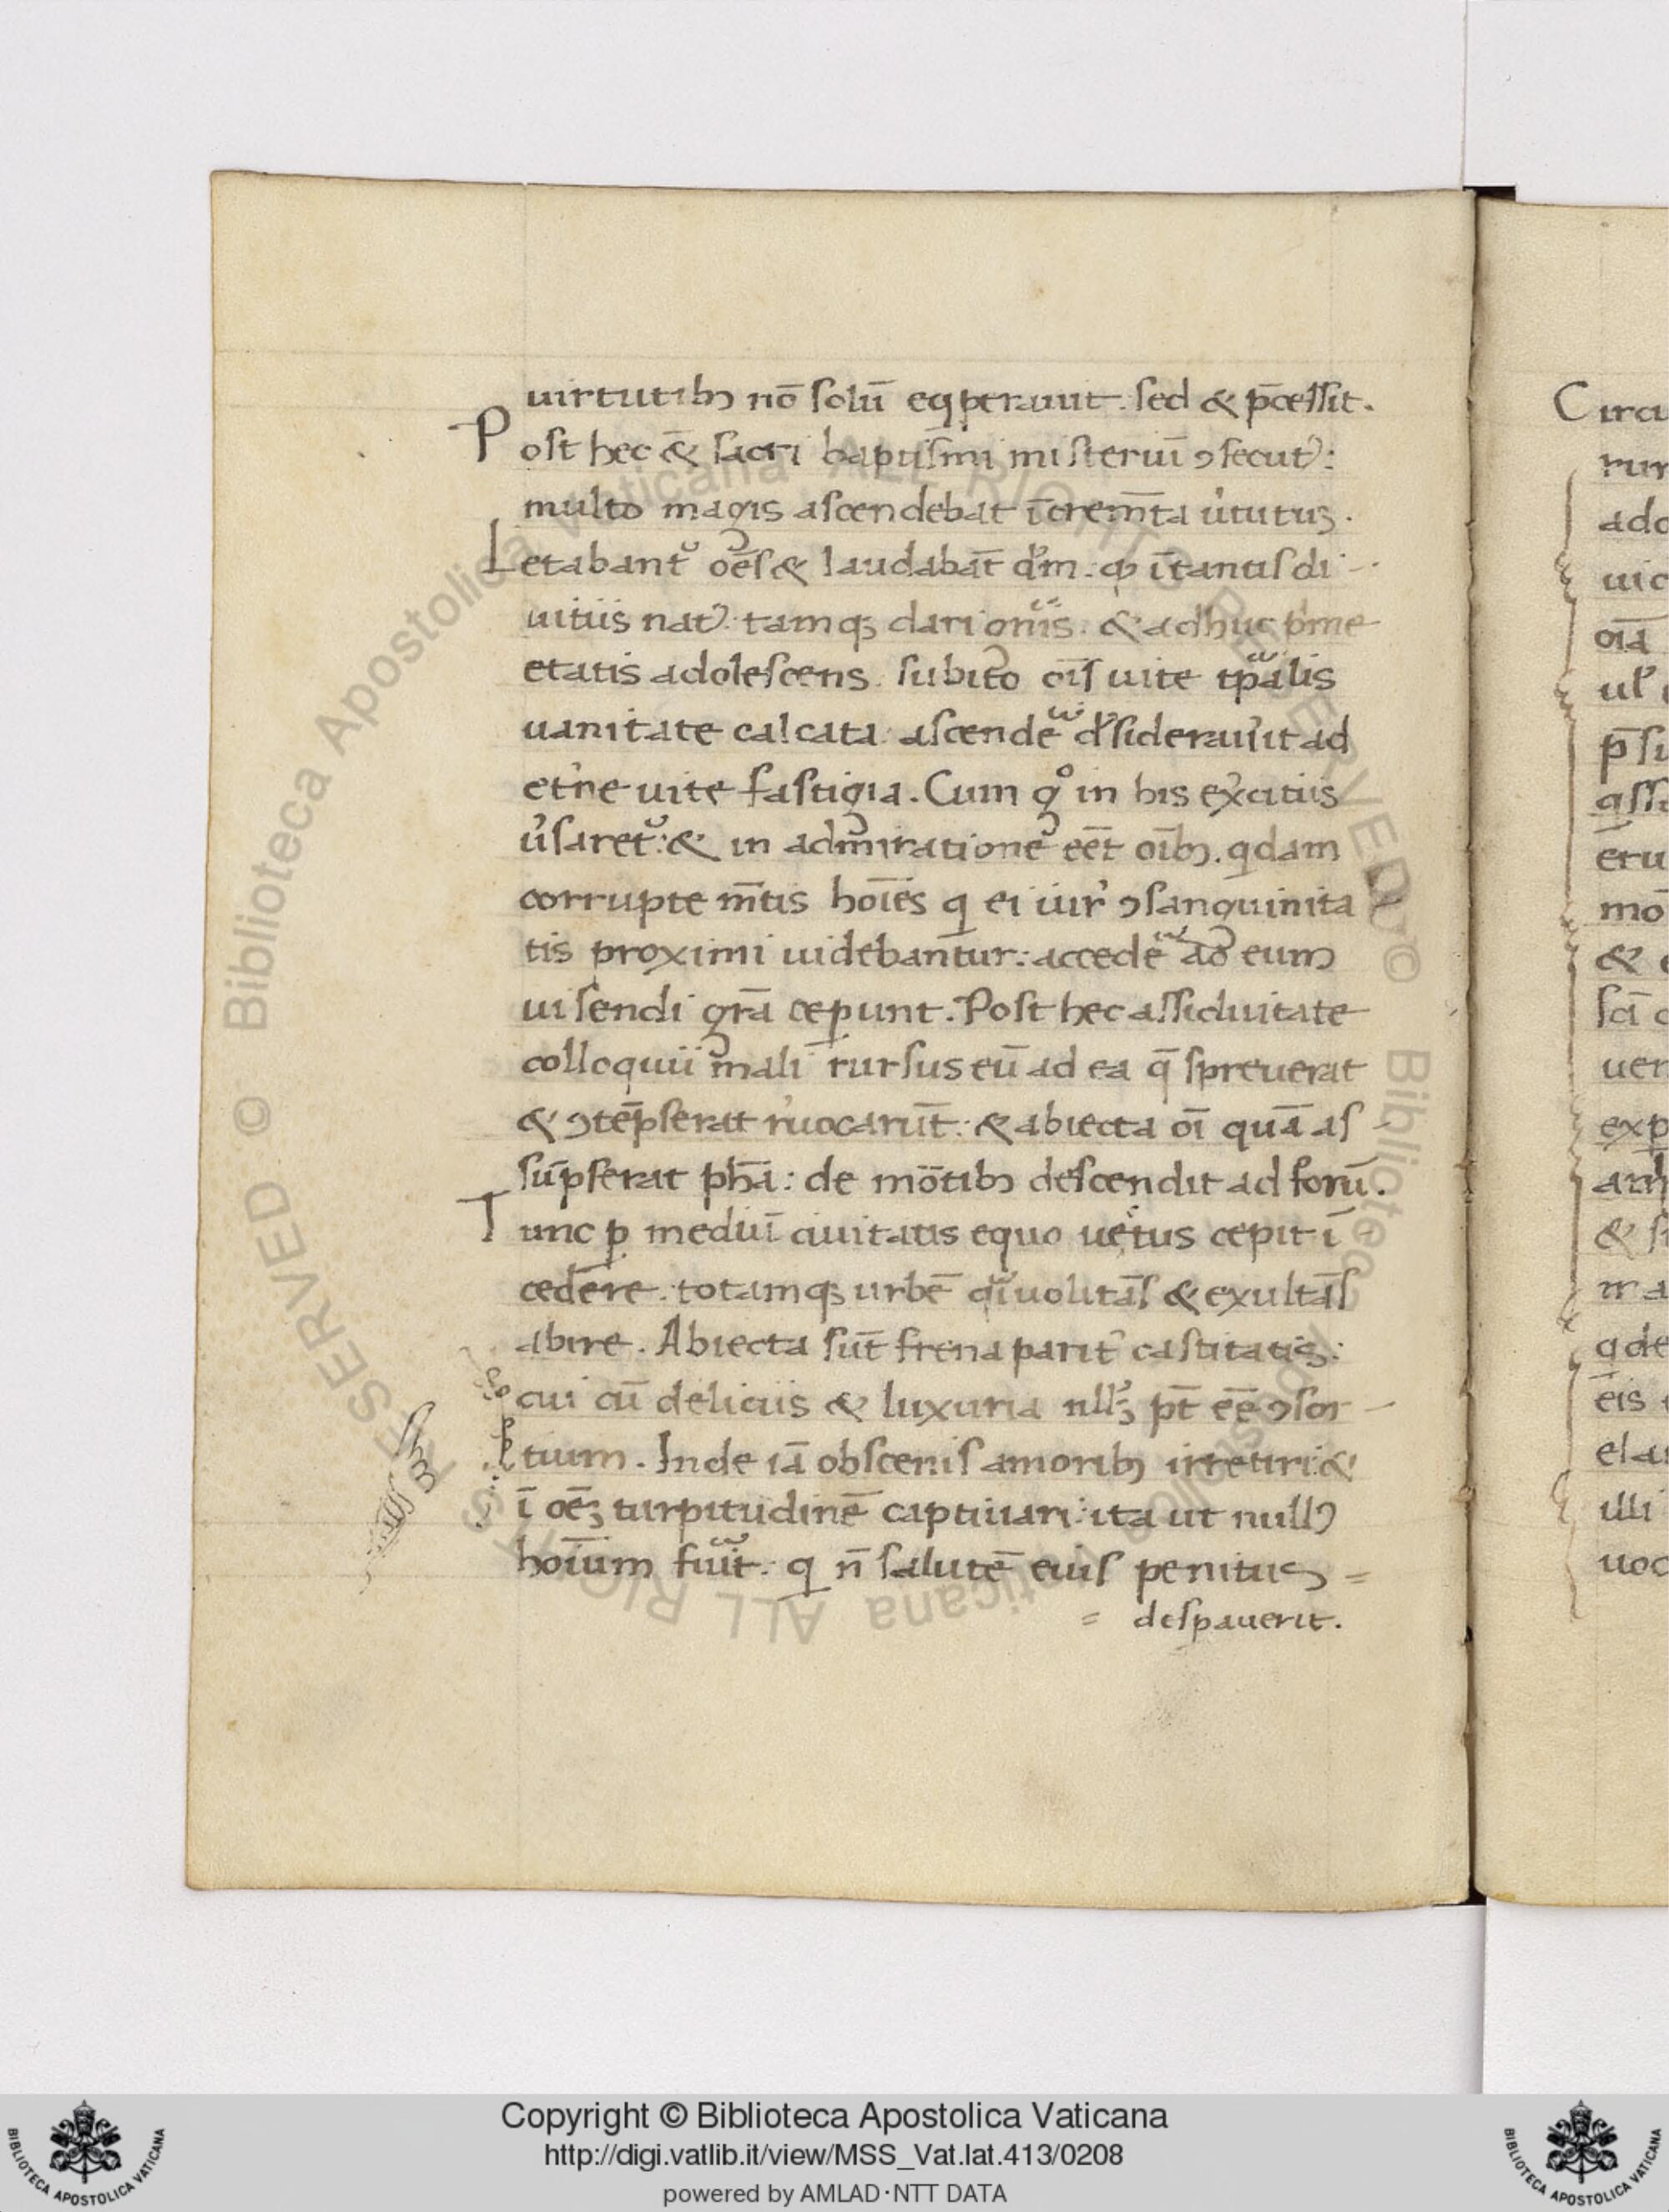 uirtutibꝫ nō solū eqꝑerauit. sed & p̄cessit.
Post hec & sacri baptismi misteriū ꝯsecutꝰ:
multo magis ascendebat īcrem̄ta u̓tutuꝫ.
Letabant᷑ oēs & laudabāt dm̄. ꝙ ītantis di-
uitiis natꝰ. tamqꝫ clari gn̄is. & adhuc pⁱme
etatis adolescens. subito oīs uite tp̄alis
uanitate calcata. ascendē desiderau̓it ad
et̓ne uite fastigia. Cum gͦ in his ex̓citiis
u̓saret᷑. & in admirationē eēt oībꝫ. qdam
corrupte m̄tis hoīes q ei iur̓ ꝯsanguinita
tis proximi uidebantur: accedē ad eum
uisendi gr̄a ceꝑunt. Post hec assiduitate
colloquii mali rursus eū ad ea q̄ spreuerat
& ꝯtēpserat r̓uocarūt. & abiecta oī quā as-
sūpserat ph̄ia: de mōtibꝫ descendit ad forū.
Tunc ꝑ mediū ciuitatis equo uectus cepit ī
cedere. totamqꝫ urbē uolitās & exultās
abire. Abiecta sūt frena parit̓ castitatis:
cui cū deliciis & luxuria nllꝫ pt̄ eē ꝯsor-
tium. Inde iā obscenis amoribꝫ irretiri. &
ī oēꝫ turpitudinē captiuari. ita ut nullꝰ
hoīum fuit. q n̄ salutē eius penitus =
= despauerit.
Circu
rur
ado
uic
oīa
ul̓
p̄ su
assi
ēru
mō
&
sc̄i
uer
exp
& si
ir a
qde
ēis
ela
illi
uoc
Biblioteca Apostolica Vaticana ALL RIGHTS RESERVED ©
Copyright © Biblioteca Apostolica Vaticana
http://digi.vatlib.it/view/MSS_Vat.lat.413/0208
powered by AMLAD·NTT DATA
BIBLIOTECA APOSTOLICA VATICANA
BIBLIOTECA APOSTOLICA VATICANA